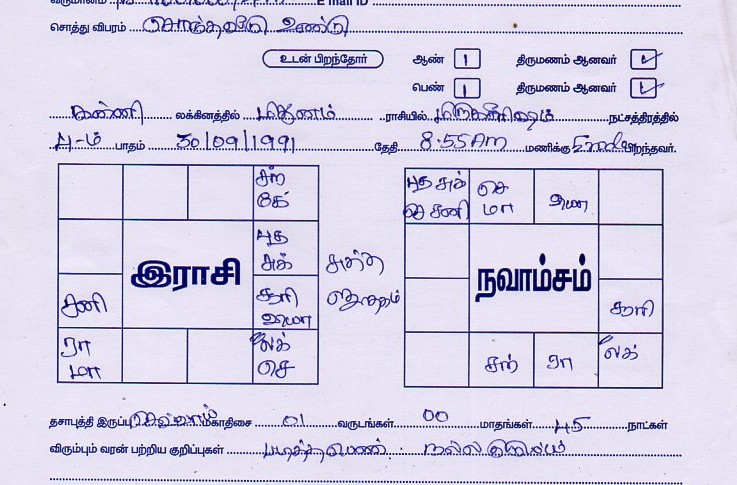 சொத்து விபரம் சொந்தவீடு உண்டு
உடன் பிறந்தோர் ஆண் 1 திருமணம் ஆனவர்
பெண் 1 திருமணம் ஆனவர்
கன்னி லக்கினத்தில் மிதுனம் ராசியில் மிருகசீரிஷம் நட்சத்திரத்தில்
பாதம் 30/09/1991 தேதி 8.55 AM மணிக்கு பிறந்தவர்.
சந்
கே
புத சுக் செ
செ சனி மா
புத
சுக்
இராசி
நவாம்சம்
சனி
சூரி
சூரி
ரா
மா
லக்
செ
சந் ரா லக்
தசாபுத்தி இருப்பு செவ்வாய் மகாதிசை 01 வருடங்கள் 00 மாதங்கள் 45 நாட்கள்
விரும்பும் வரன் பற்றிய குறிப்புகள் படித்த பெண் நல்ல குடும்பம்